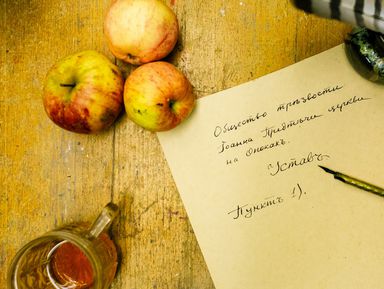 Общество трѣзвости
Іоанна Предтечи церкви
на Онокахъ.
Уставъ
Пунктъ 1).